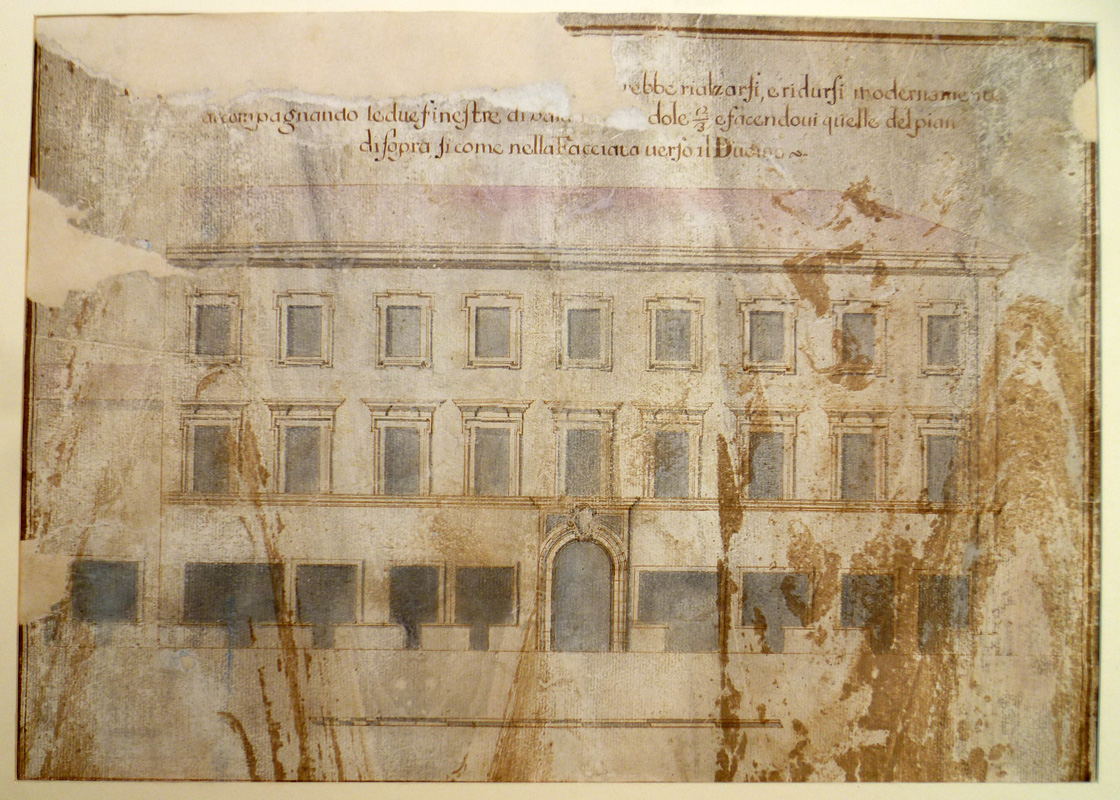 ebbe rialzarsi, e ridursi modernamente
accompagnando le due finestre di dole 2/3 e facendoui quelle del pian
di sopra, si come nella Facciata uerso il Duomo